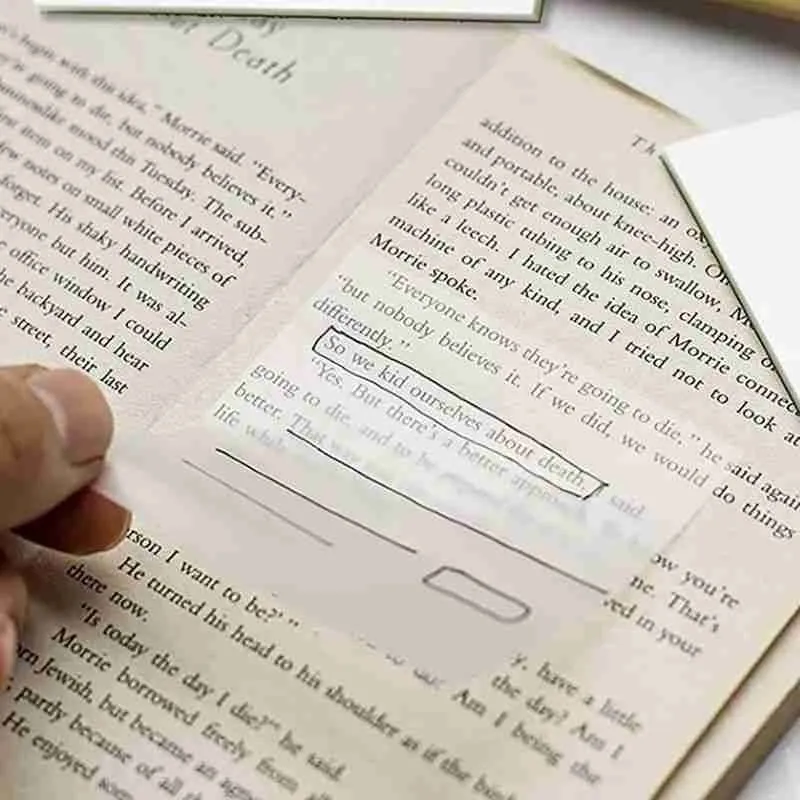 Death
begin with this idea," Morrie said. "Every-
going to die, but nobody believes it."
mood this Tuesday. The sub-
item on my list. Before I arrived,
few notes on small white pieces of
forget. His shaky handwriting
everyone but him. It was al-
office window I could
the backyard and hear
street, their last
addition to the house: an
and portable, about knee-high.
couldn't get enough air to swallow,
long plastic tubing to his nose, clamping
like a leech. I hated the idea of Morrie
machine of any kind, and I tried not to look at
Morrie spoke.
"Everyone knows they're going to die," he said again
"but nobody believes it. If we did, we would do things
differently."
So we kid ourselves about death, I said.
"Yes. But there's a better approach.
going to die, and to be
better. That way
life while
ow you're
me. That's
in your
y, have a little
the day? Am I
Am I being the
person I want to be?' "
He turned his head to his shoulder as if the
there now.
"Is today the day I die?" he said.
Morrie borrowed freely from
Jewish, but became an
partly because of all
He enjoyed